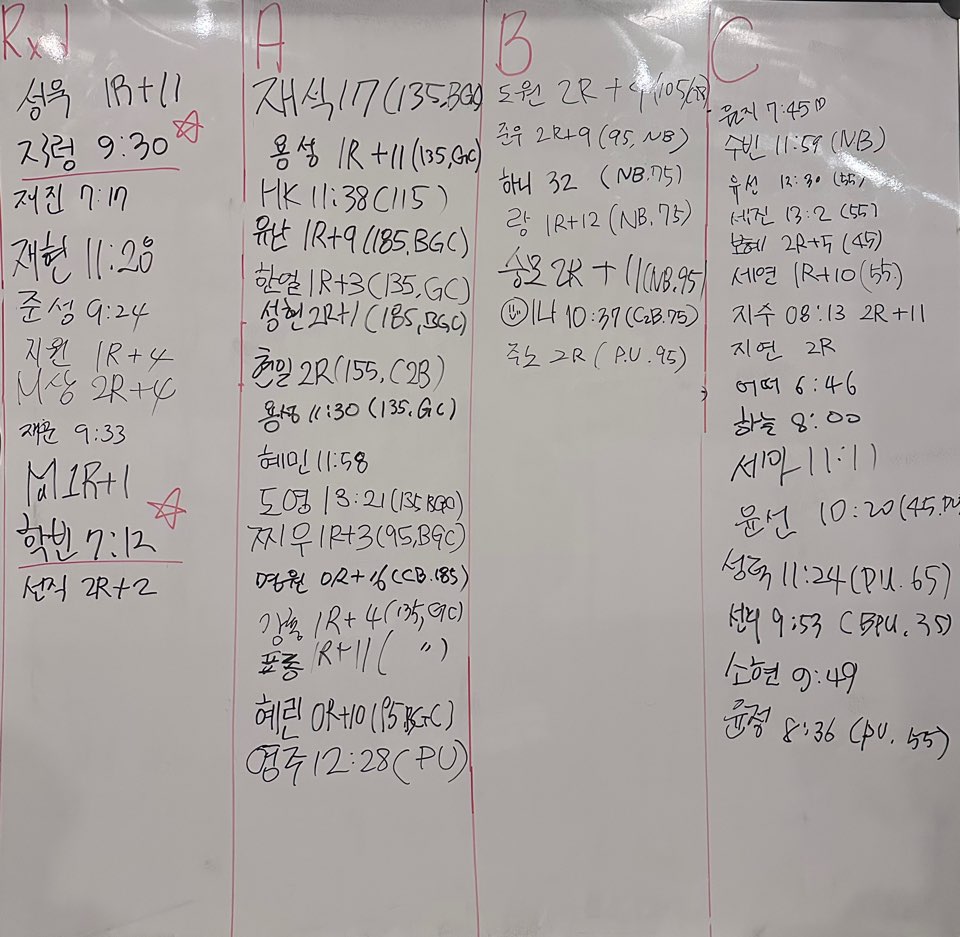 Rxd
성욱 1R+11
지령 9:30
저진 7:17
재현 11:28
준성 9:24
지원 1R+4
M상 2R+4
재문 9:33
Ma 1R+1
학빈 7:12
선직 2R+2
A
재석 17 (135, BGC)
용성 1R+11 (135, GC)
HK 11:38 (115)
유난 1R+9 (185, BGC)
한열 1R+3 (135, GC)
성현 2R+1 (185, BGC)
현일 2R (155, C2B)
용성 11:30 (135, GC)
혜민 11:58
도영 13:21 (135 BGC)
찌우 1R+3 (95, BGC)
명원 0R+16 (CB.185)
강홍 1R+4 (135, GC)
표룡 1R+11 ( 〃 )
혜린 0R+10 (95, BGC)
영주 12:28 (PU)
B
도원 2R+9 (105
준우 2R+9 (95, NB)
하니 32 (NB.75)
랑 1R+12 (NB.75)
승모 2R+11 (NB.95)
이나 10:37 (C2B.75)
주노 2R (P.U.95)
C
윤지 7:45
수빈 11:59 (NB)
우선 12:30 (55)
세진 13:2 (55)
보혜 2R+5 (45)
세연 1R+10 (55)
지수 08:13 2R+11
지연 2R
어떠 6:46
하늘 8:00
세미 11:11
윤선 10:20 (45.PU
성덕 11:24 (PU.65)
선 9:53 (BPU.35)
소현 9:49
윤정 8:36 (PU.55)